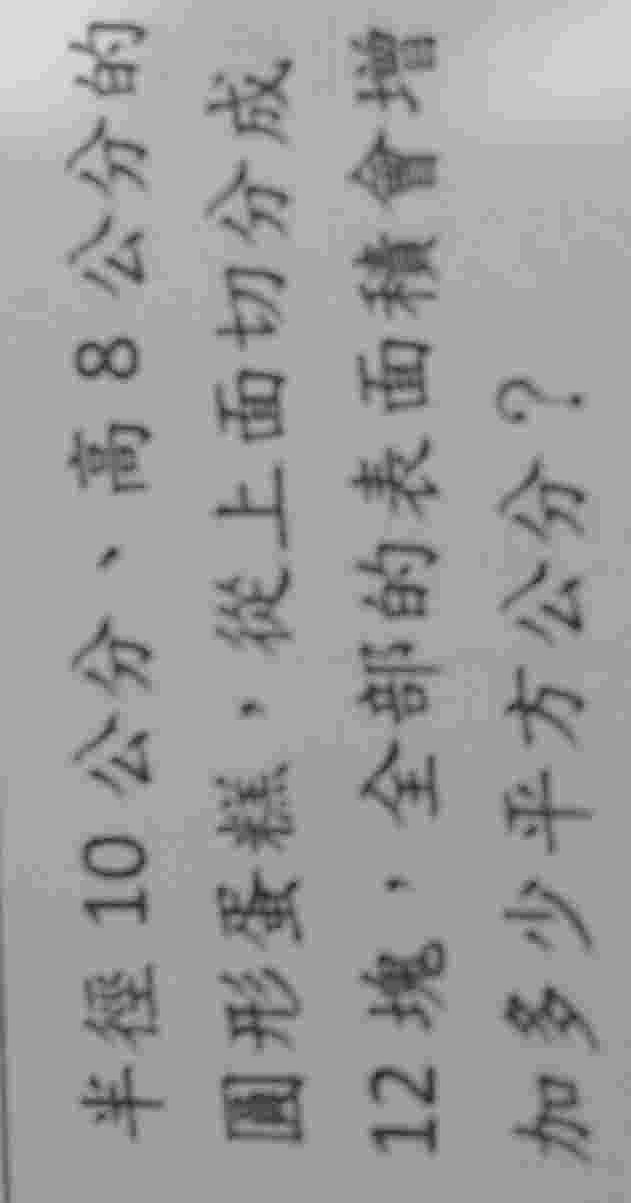 半徑 10 公分、高 8 公分的
圓形蛋糕，從上面切分成
12 塊，全部的表面積會增
加多少平方公分？